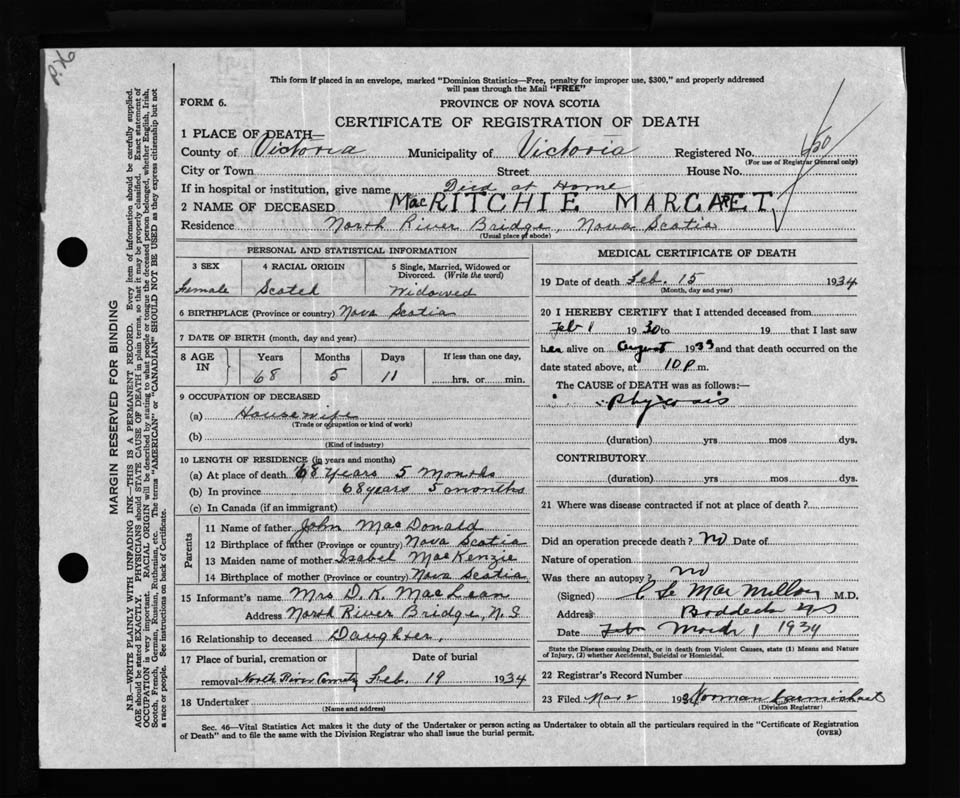 P.X6
This form if placed in an envelope, marked "Dominion Statistics—Free, penalty for improper use, $300," and properly addressed
will pass through the Mail "FREE"
FORM 6.
PROVINCE OF NOVA SCOTIA
CERTIFICATE OF REGISTRATION OF DEATH
1 PLACE OF DEATH—
County of Victoria Municipality of Victoria Registered No.
(For use of Registrar General only)
City or Town Street House No.
If in hospital or institution, give name Died at Home
2 NAME OF DECEASED MacRITCHIE MARGARET
Residence North River Bridge, Nova Scotia
(Usual place of abode)
PERSONAL AND STATISTICAL INFORMATION
3 SEX 4 RACIAL ORIGIN 5 Single, Married, Widowed or
Divorced. (Write the word)
Female Scotch Widowed
6 BIRTHPLACE (Province or country) Nova Scotia
7 DATE OF BIRTH (month, day and year)
8 AGE IN Years Months Days If less than one day,
68 5 11 hrs. or min.
9 OCCUPATION OF DECEASED
(a) Housewife
(Trade or occupation or kind of work)
(b)
(Kind of industry)
10 LENGTH OF RESIDENCE (in years and months)
(a) At place of death 68 Years 5 Months
(b) In province 68 years 5 months
(c) In Canada (if an immigrant)
Parents
11 Name of father John MacDonald
12 Birthplace of father (Province or country) Nova Scotia
13 Maiden name of mother Isabel MacKenzie
14 Birthplace of mother (Province or country) Nova Scotia
15 Informant's name Mrs D. K. MacLean
Address North River Bridge, N.S
16 Relationship to deceased Daughter,
17 Place of burial, cremation or Date of burial
removal North River Cemetry Feb. 19 1934
18 Undertaker
(Name and address)
MEDICAL CERTIFICATE OF DEATH
19 Date of death Feb. 15 1934
(Month, day and year)
20 I HEREBY CERTIFY that I attended deceased from
Feb 1 1930 to 19 that I last saw
her alive on August 1933 and that death occurred on the
date stated above, at 10 P. m.
The CAUSE OF DEATH was as follows:—
(duration) yrs mos dys.
CONTRIBUTORY
(duration) yrs mos dys.
21 Where was disease contracted if not at place of death?
Did an operation precede death? No Date of
Nature of operation
Was there an autopsy? no
(Signed) MacMillan M.D.
Address Baddeck NS
Date Feb March 1 1934
State the Disease causing Death, or in death from Violent Causes, state (1) Means and Nature
of Injury, (2) whether Accidental, Suicidal or Homicidal.
22 Registrar's Record Number
23 Filed Mar 2 1934 Norman Carmichael
(Division Registrar)
Sec. 46—Vital Statistics Act makes it the duty of the Undertaker or person acting as Undertaker to obtain all the particulars required in the "Certificate of Registration
of Death" and to file the same with the Division Registrar who shall issue the burial permit.
(OVER)
MARGIN RESERVED FOR BINDING
N.B.—WRITE PLAINLY WITH UNFADING INK—THIS IS A PERMANENT RECORD. Every item of information should be carefully supplied.
AGE should be stated EXACTLY. PHYSICIANS should STATE CAUSE OF DEATH in plain terms, so that it may be properly classified. Exact statement of
OCCUPATION is very important. RACIAL ORIGIN will be described by stating to what people or tongue the deceased person belonged, whether English, Irish,
Scotch, French, German, Russian, Ruthenian, etc. The terms "AMERICAN" or "CANADIAN" SHOULD NOT BE USED as they express citizenship but not
a race or people. See instructions on back of Certificate.